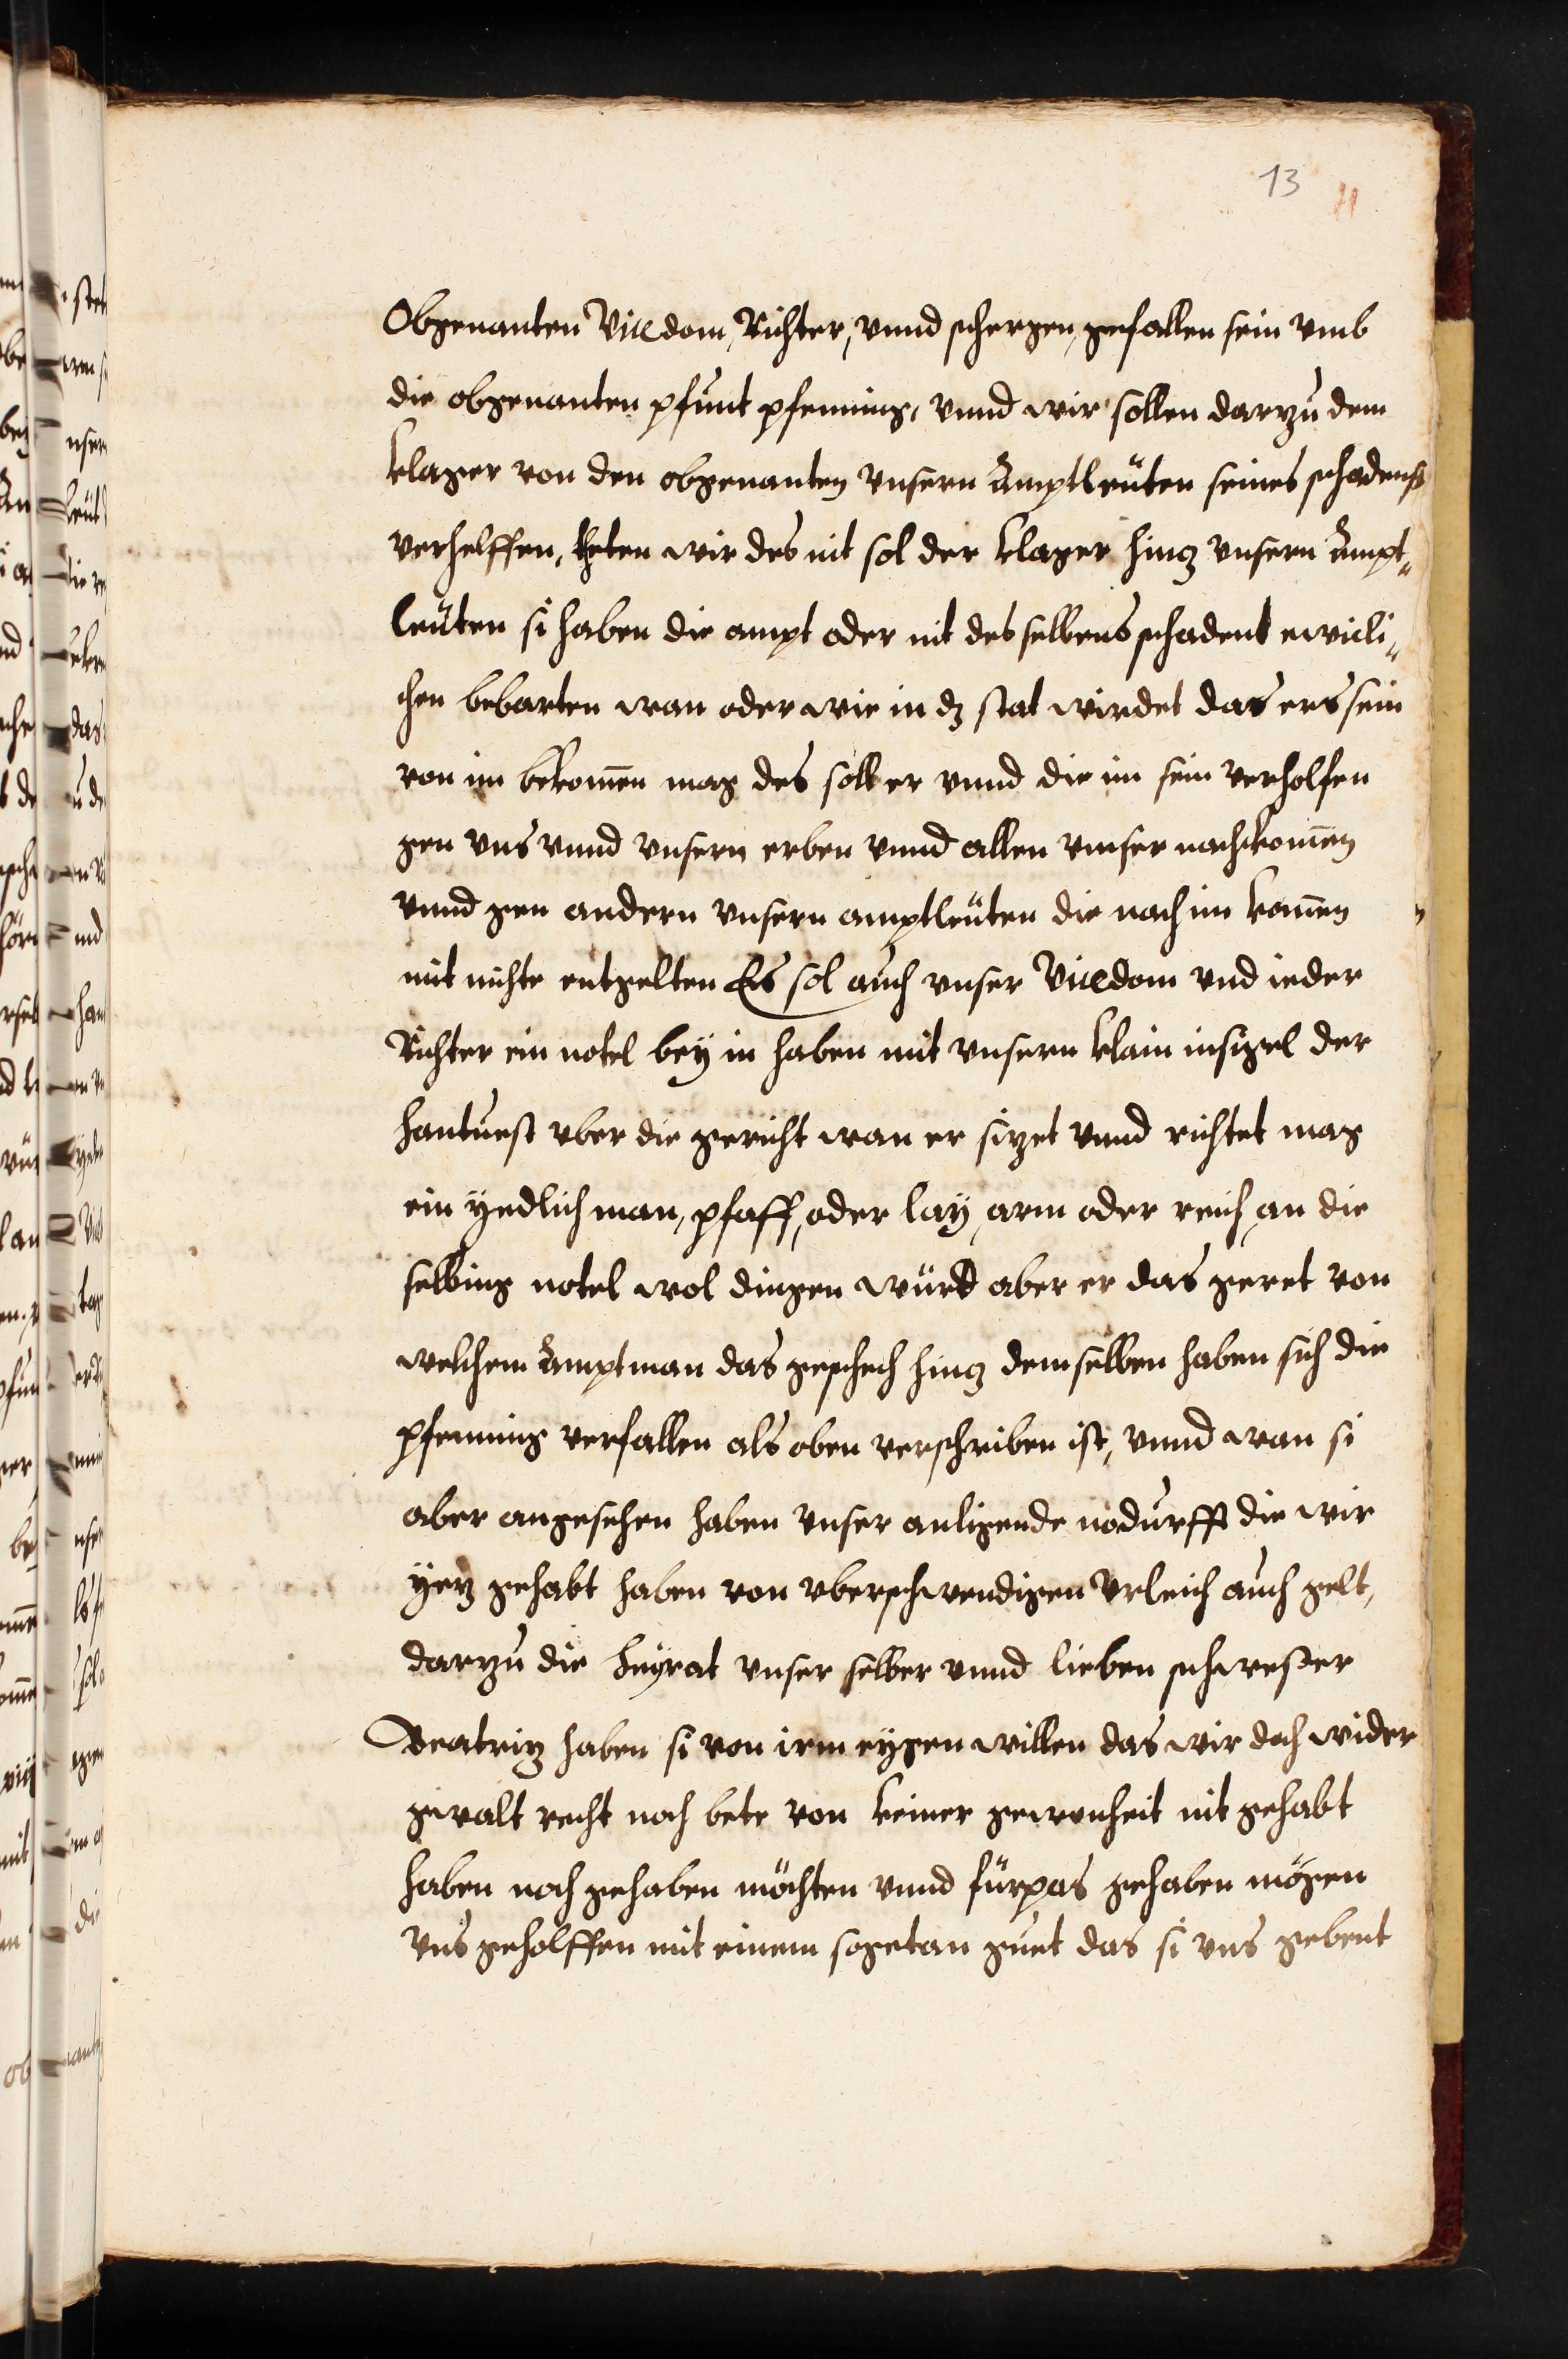 13 11
Obgenanten Vicedom, Richter, vnnd schergen, gefallen sein vmb
die obgenanten pfunt pfenning, vnnd wir sollen darzu dem
klager von den obgenanten vnsern Amptleüten seines schadens
verhelffen, theten wir des nit sol der klager hintz vnsern Ampt„
leüten si haben die ampt oder nit des selbens schadent ewicli„
chen bebarten wan oder wie in dz stat wirdet das ers sein
von im bekomen mag des soll er vnnd die im sein verholfen
gen vns vnnd vnsern erben vnnd allen vnser nachkomen
vnnd gen andern vnsern amptleüten die nach im komen
mit nichte entgelten Es sol auch vnser Vicedom vnd ieder
Richter ein notel bey in haben mit vnsern klain insigel der
hantuest vber die gericht wan er sizet vnnd richtet mag
ein yedlich man, pfaff, oder lay, arm oder reich an die
selbing notel wol dingen würd aber er das geret von
welchem Amptman das geschech hintz demselben haben sich die
pfenning verfallen als oben verschriben ist, vnnd wan si
aber angesehen haben vnser anligende nodurfft die wir
yetz gehabt haben von vberschwendigen Vrleich auch gelt,
darzu die heyrat vnser selber vnnd lieben schwester
Beatritz haben si von irm eygen willen das wir doch wider
gwalt recht noch bete von keiner gewonheit nit gehabt
haben noch gehaben möchten vnnd fürpas gehaben mögen
vns geholffen mit einem sogetan guet das si vns gebent